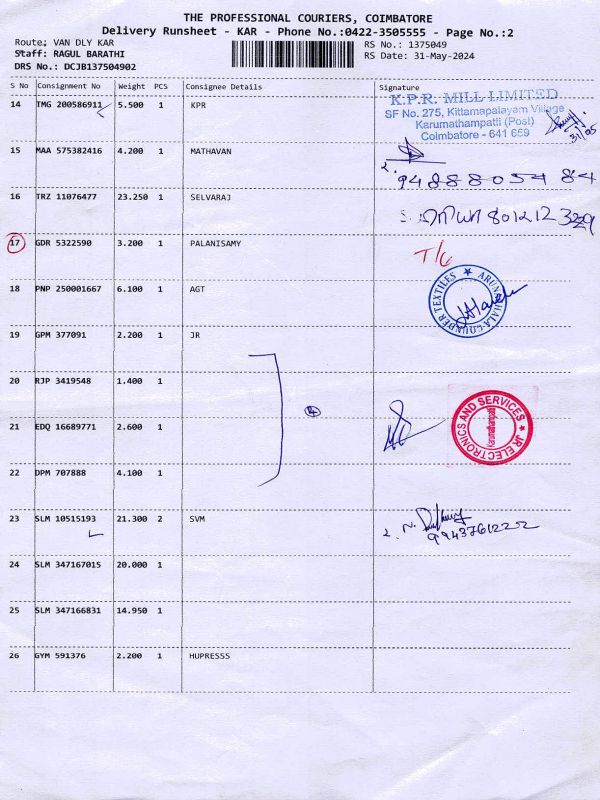 THE PROFESSIONAL COURIERS, COIMBATORE
Delivery Runsheet - KAR - Phone No.:0422-3505555 - Page No.:2
Route: VAN DLY KAR
Staff: RAGUL BARATHI
DRS No.: DCJB137504902
RS No.: 1375049
RS Date: 31-May-2024
S No Consignment No Weight PCS Consignee Details Signature
14 TMG 200586911 5.500 1 KPR
K.P.R. MILL LIMITED
SF No. 275, Kittampalayam Village
Karumathampatti (Post)
Coimbatore - 641 659
31/05
15 MAA 575382416 4.200 1 MATHAVAN
2. 9488805484
16 TRZ 11076477 23.250 1 SELVARAJ
17 GDR 5322590 3.200 1 PALANISAMY
18 PNP 250001667 6.100 1 AGT
ARUNACHALA GOUNDER TEXTILES
19 GPM 377091 2.200 1 JR
20 RJP 3419548 1.400 1
4
21 EDQ 16689771 2.600 1
JR ELECTRONICS AND SERVICES
22 DPM 707888 4.100 1
23 SLM 10515193 21.300 2 SVM
2. N.
24 SLM 347167015 20.000 1
25 SLM 347166831 14.950 1
26 GYM 591376 2.200 1 HUPRESSS